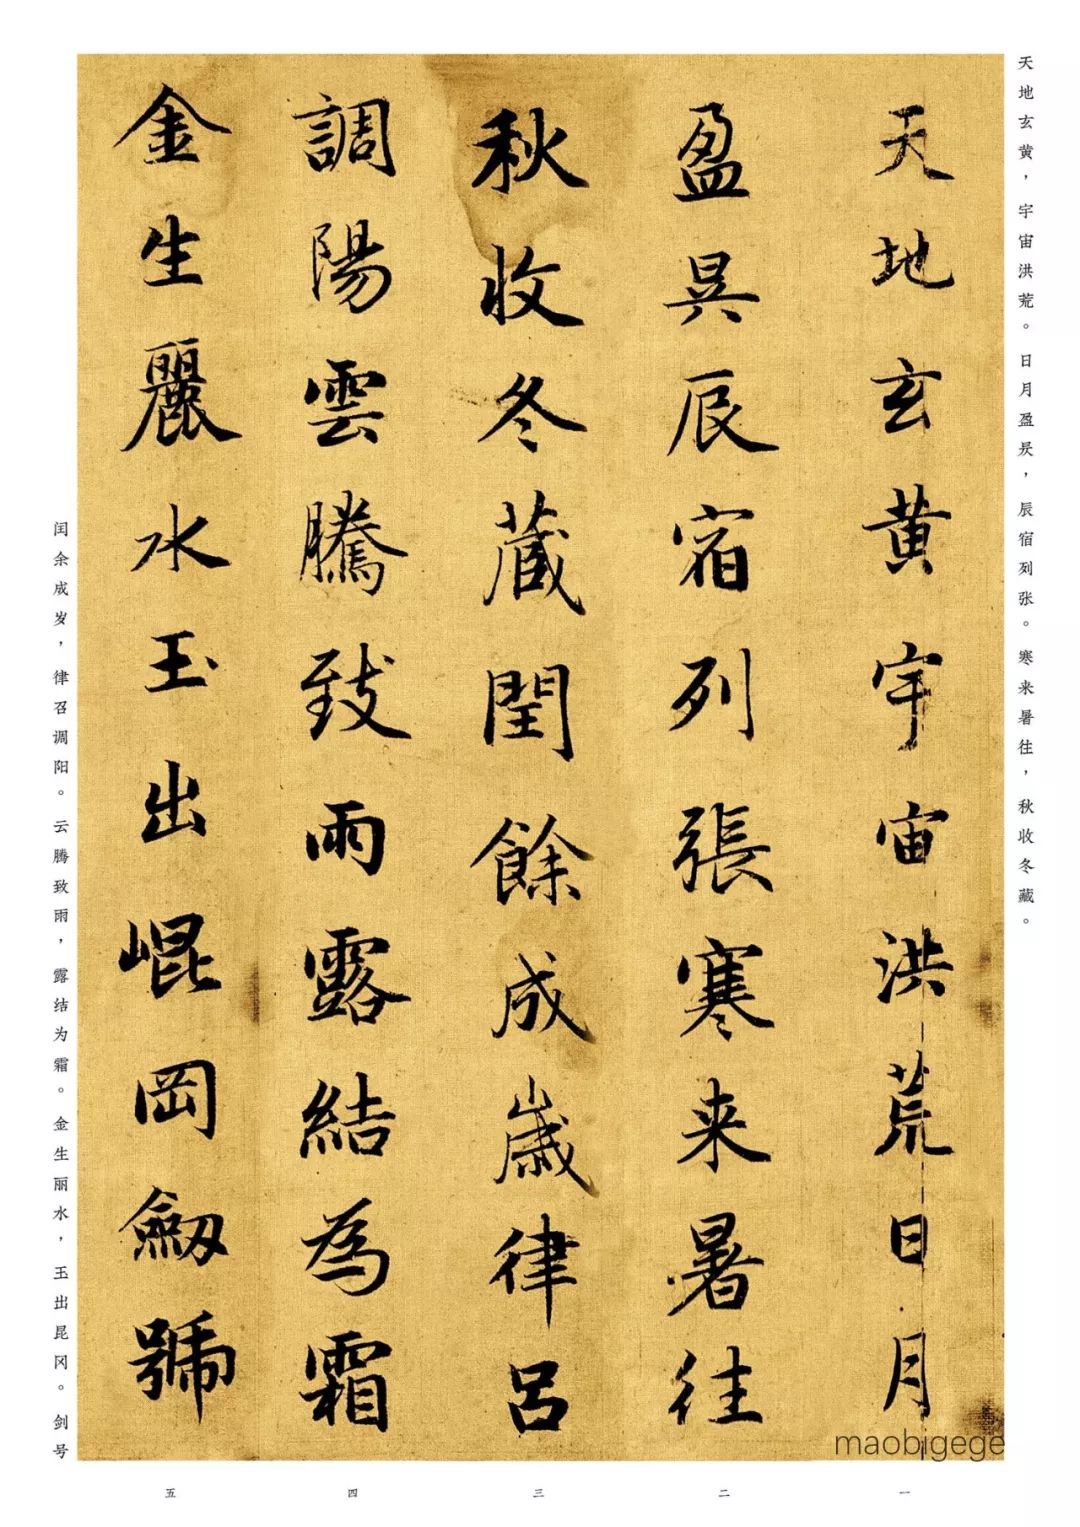 天地玄黄，宇宙洪荒。日月盈昃，辰宿列张。寒来暑往，秋收冬藏。
天地玄黄宇宙洪荒日月
盈昃辰宿列張寒来暑往
秋收冬藏閏餘成歲律吕
調陽雲騰致雨露結為霜
金生麗水玉出崐岡劒號
闰余成岁，律召调阳。云腾致雨，露结为霜。金生丽水，玉出昆冈。剑号
maobigege
一
二
三
四
五